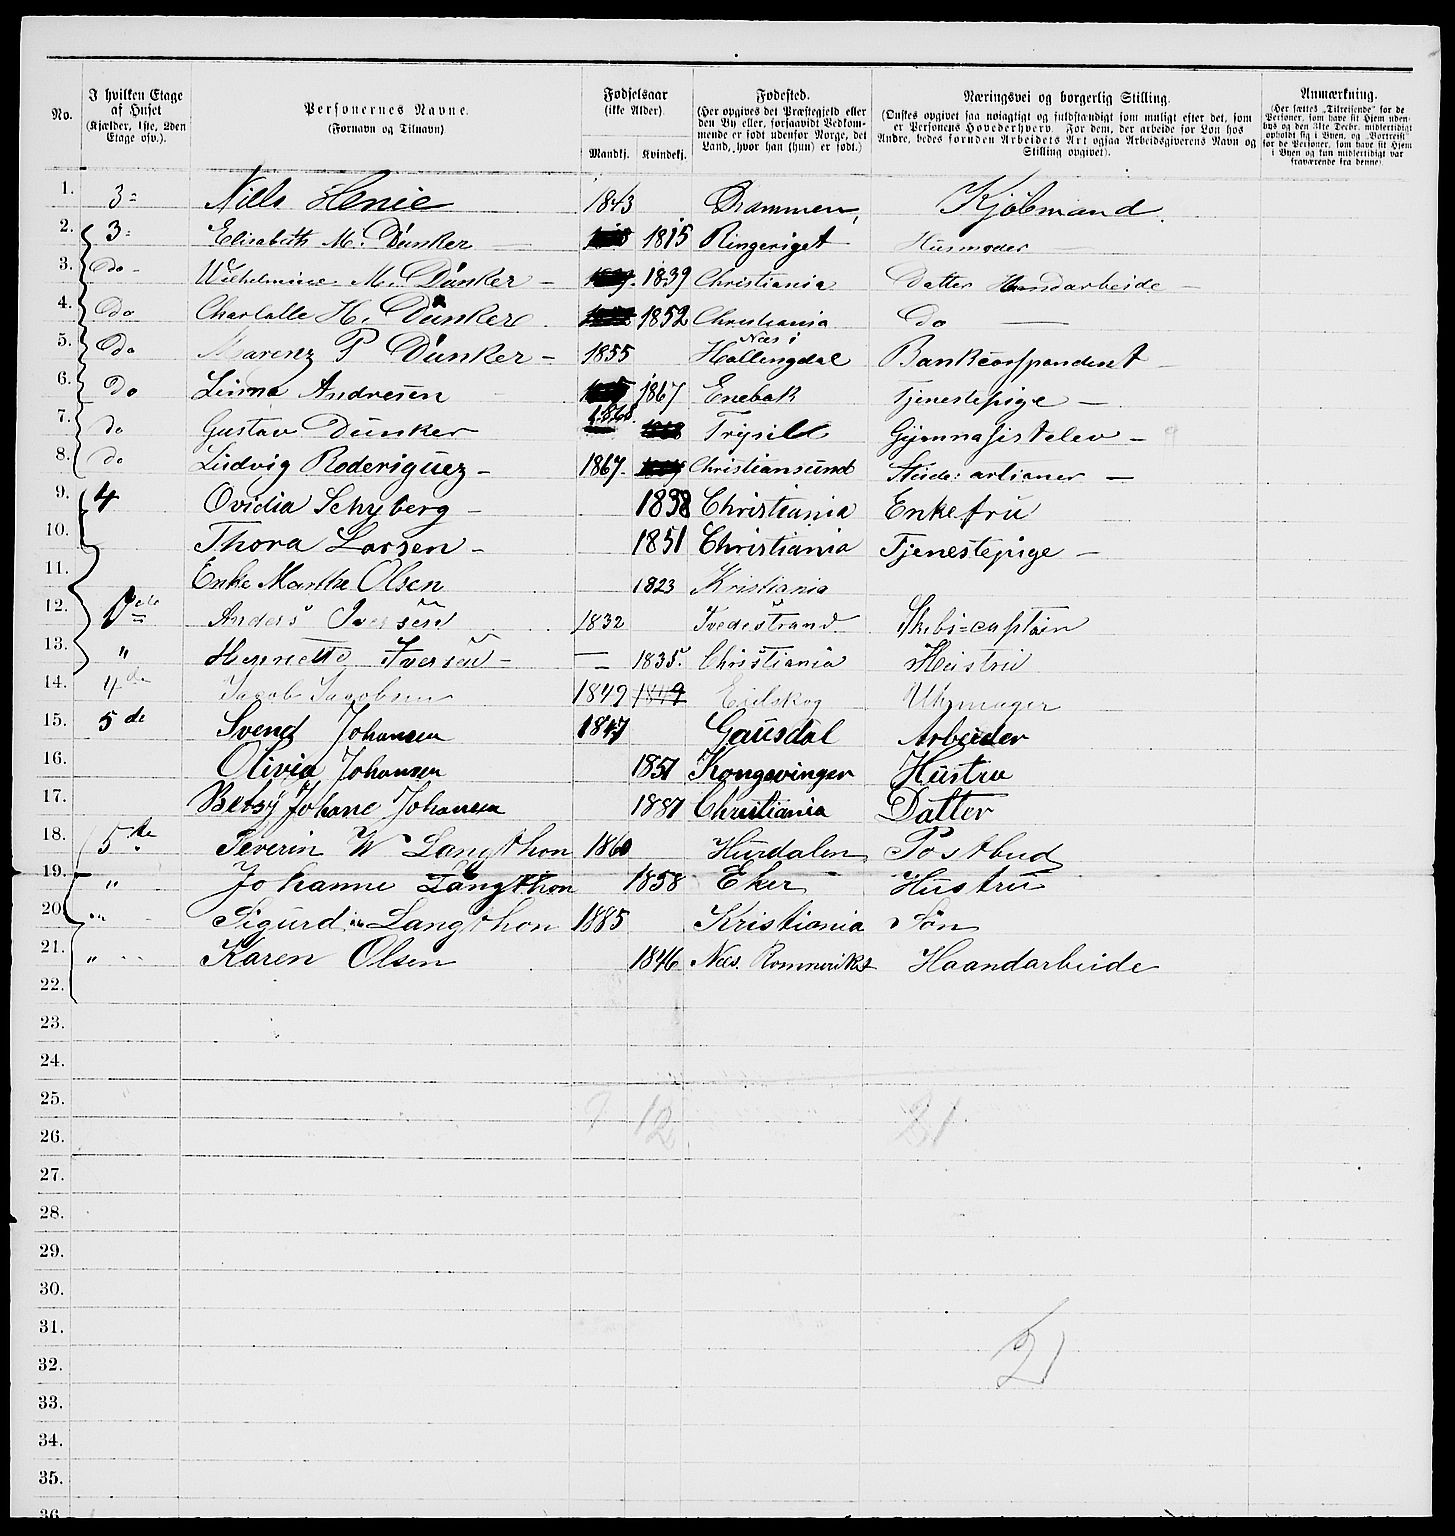 No. I hvilken Etage af Huset (Kjælder, 1ste, 2den Etage osv.). Personernes Navne. (Fornavn og Tilnavn). Fødselsaar (ikke Alder). Mandkj. Kvindekj. Fødested. (Her opgives det Præstegjeld eller den By eller, forsaavidt Vedkommende er født udenfor Norge, det Land, hvor han (hun) er født.) Næringsvei og borgerlig Stilling. (Ønskes opgivet saa nøiagtigt og fuldstændigt som muligt efter det, som er Personens Hovederhverv. For dem, der arbeide for Løn hos Andre, bedes foruden Arbeidets Art ogsaa Arbeidsgiverens Navn og Stilling opgivet). Anmærkning. (Her sættes „Tilreisende" for de Personer, som have sit Hjem udenbys og den 31te Decbr. midlertidigt opholdt sig i Byen, og „Bortreist" for de Personer, som have sit Hjem i Byen og kun midlertidigt var fraværende fra denne).
1. 3= Nills Henie 1843 Drammen, Kjøbmand.
2. 3= Elisabeth M. Dunker — 1815 Ringeriget Husmoder —
3. Do - Wilhelmine M. Dunker — 1839 Christiania Datter Haandarbeide -
4. Do Charlotte H. Dunker 1852 Christiania Do —
5. Do Marenz P Dunker - 1855 Næs i Hallingdal Bankcorspondent -
6. Do Linna Andresen 1867 Enebak Tjenestepige —
7. do Gustav Dunker 1868. Trysild Gymnasistelev -
8. do Ludvig Roderiguez - 1867. Christiansund artianer —
9. 4 Ovidia Schyberg - 1838 Christiania Enkefru
10. Thora Larsen - 1851 Christiania Tjenestepige —
11. Enke Marthe Olsen 1823 Kristiania
12. 1ste Anders Iversen 1832 Tvedestrand Skibs=captain
13. " Hennette Iversen - — 1835. Christiania Hustru
14. 4de Jacob Jacobsen 1849 1849 Eidskog Uhrmager
15. 5 de Svend Johansen 1847 Gausdal Arbeider
16. Olivia Johansen 1851 Kongsvinger Hustru
17. Betsy Johane Johansen 1881 Christiania Datter
18. 5te Severin W Langthon 1860 Hurdalen Postbud
19. " Johanne Langthon 1858 Eker Hustru
20. " Sigurd Langthon 1885 Kristiania Søn
21. " Karen Olsen 1846 Næs. Rommeriket Haandarbeide
22.
23.
24.
25.
26. 9 12 21
27.
28.
29.
30.
31.
32. 21
33.
34.
35.
36.